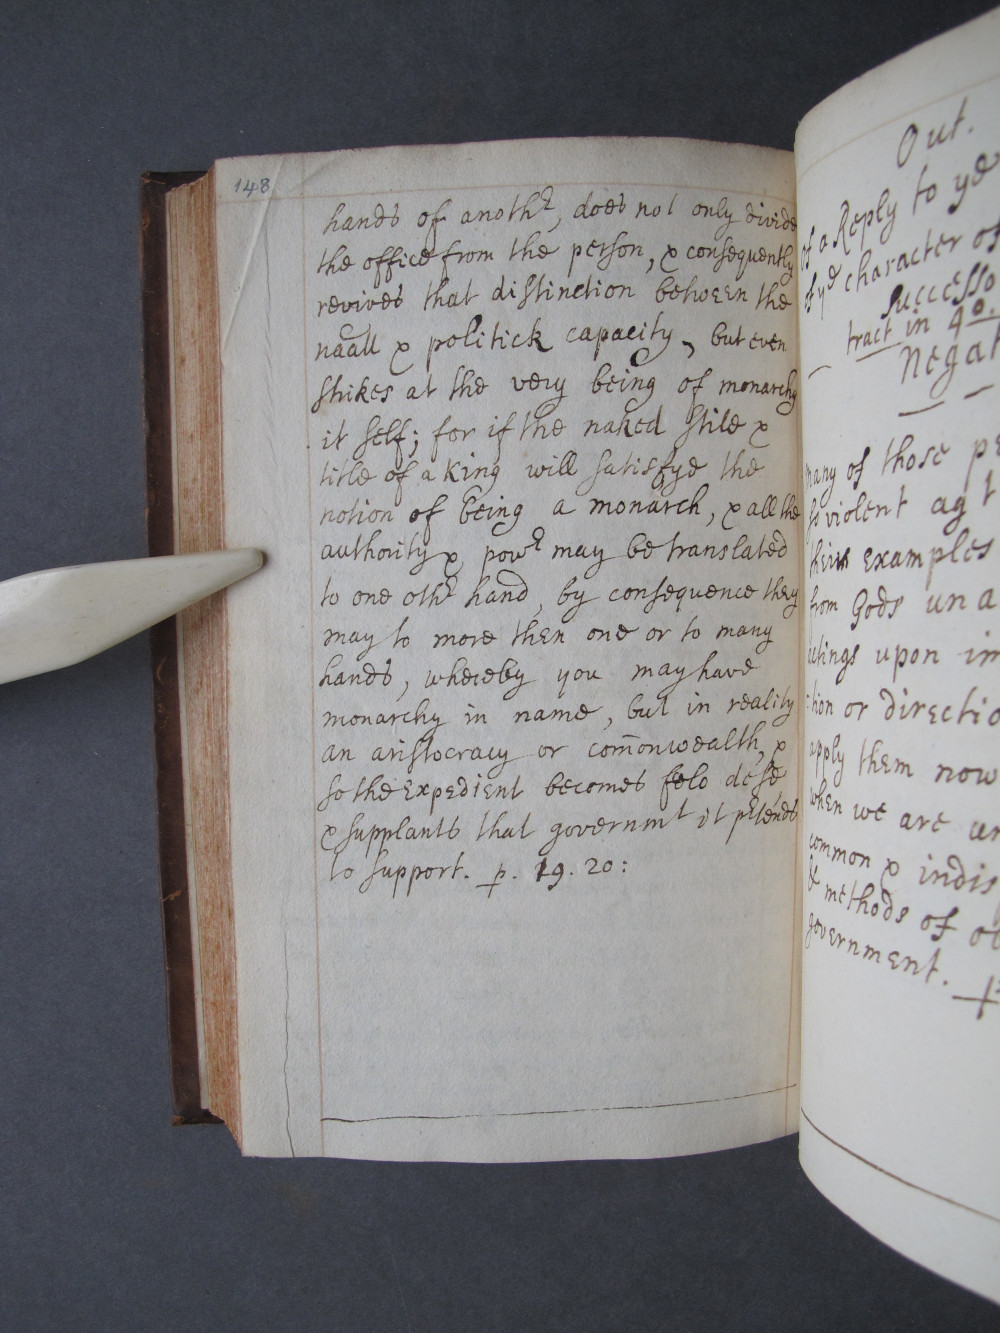 148
hands of anothr, does not only divide
the office from the person, & consequently
revives that distinction between the
naall & politick capacity, but even
strikes at the very being of monarchy
it self; for if the naked stile &
title of a King will satisfye the
notion of being a monarch, & all the
authority & powr may be translated
to one othr hand, by consequence they
may to more then one or to many
hands, whereby you may have
monarchy in name, but in reality
an aristocracy or com̄onwealth, &
so the expedient becomes felo de se
& supplants that governmt it prtends
to support. p. 19. 20:
Out.
of a Reply to ye
of ye character of
successo
tract in 4o.
Negat
many of those
so violent agt
their examples
from Gods una
upon im
ction or directio
apply them now
when we are un
common & indis
& methods of ou
government.